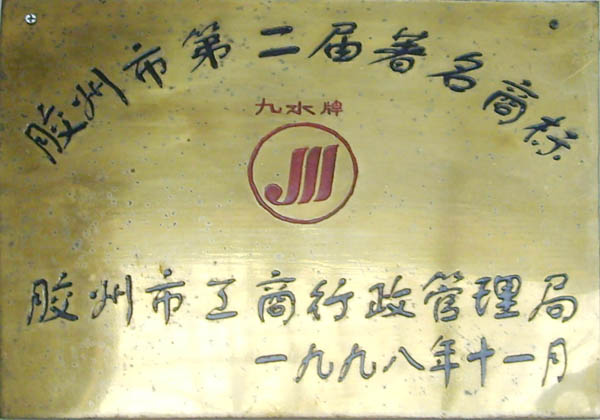 胶州市第二届著名商标
九水牌
胶州市工商行政管理局
一九九八年十一月